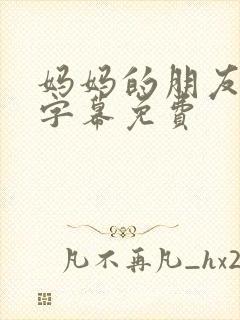 妈妈的朋友
字幕免费
凡不再凡_hx2